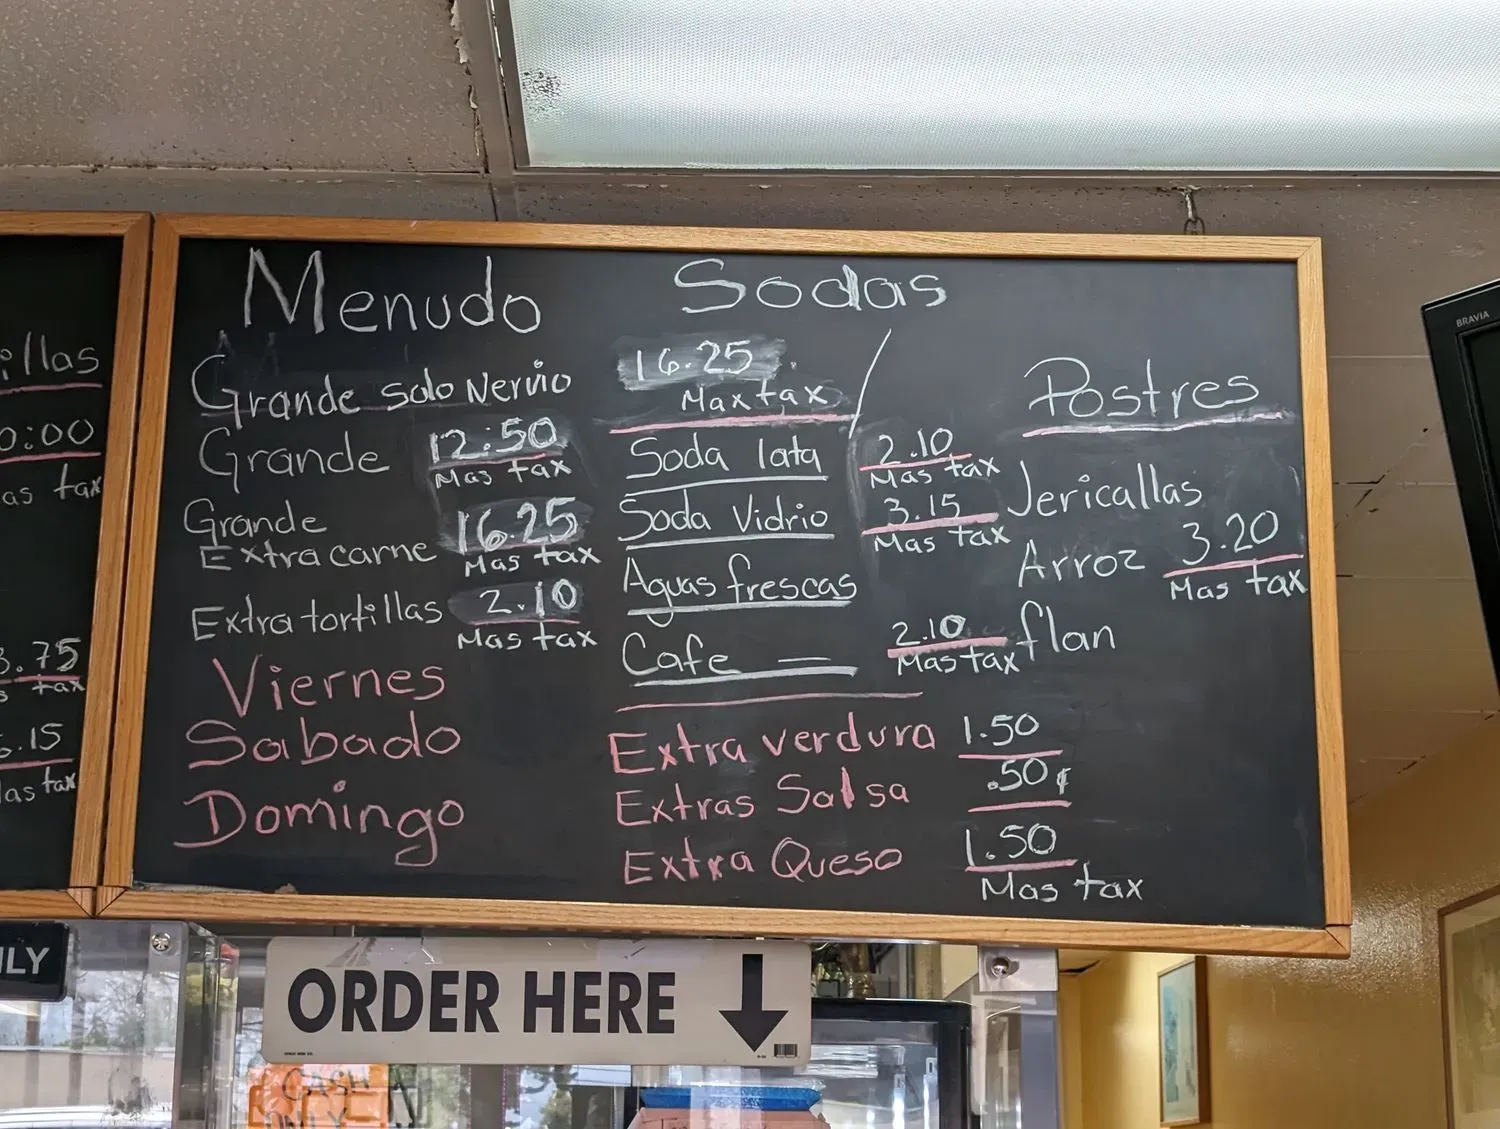 illas
0:00
as tax
3.75
s tax
6.15
as tax
Menudo
Grande solo Nervio 16.25
Max tax
Grande 12:50
Mas tax
Grande
Extra carne 16.25
Mas tax
Extra tortillas 2.10
Mas tax
Viernes
Sabado
Domingo
Sodas
Soda lata 2.10
Mas tax
Soda Vidrio 3.15
Mas tax
Aguas frescas
Cafe — 2.10
Mas tax
Extra verdura 1.50
Extras Salsa .50¢
Extra Queso 1.50
Mas tax
Postres
Jericallas
Arroz 3.20
Mas tax
flan
BRAVIA
LY
ORDER HERE
CASH
ONLY